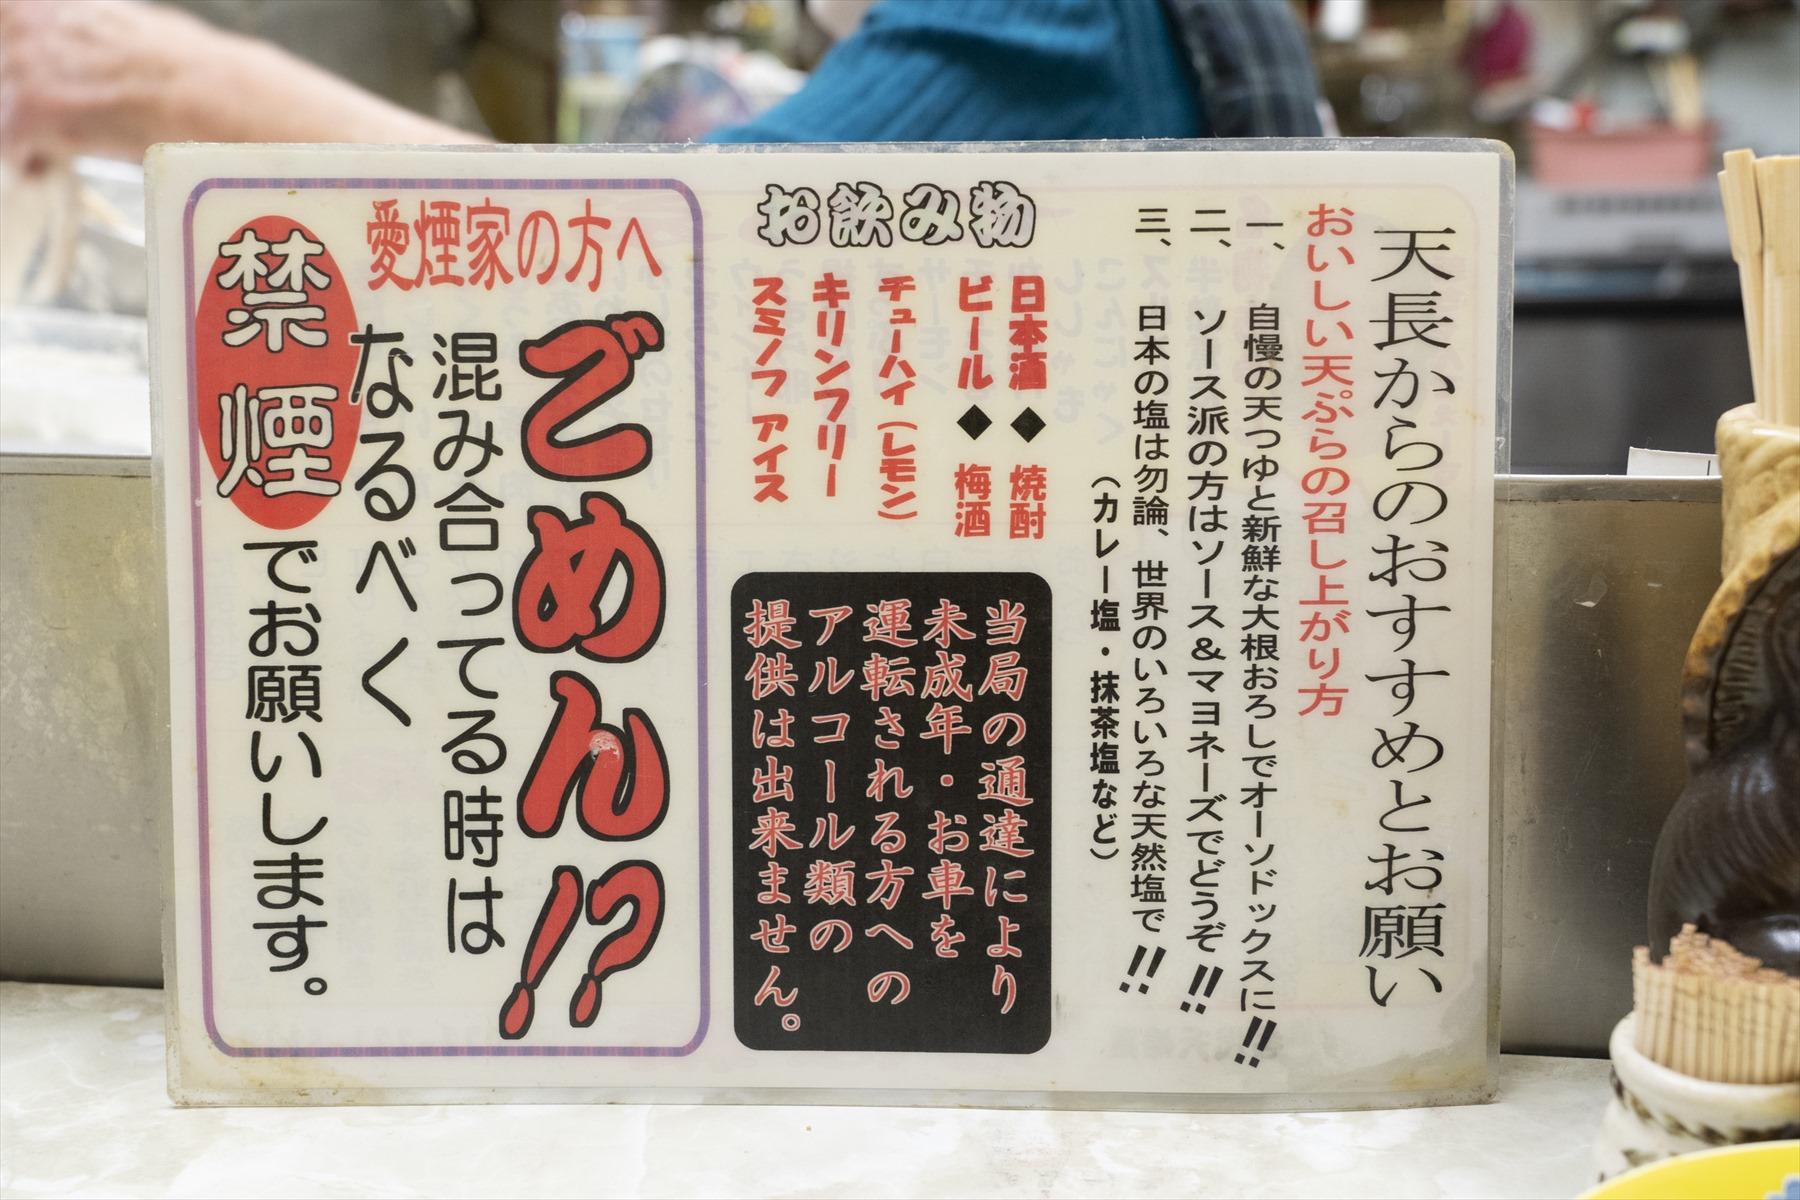 天長からのおすすめとお願い
おいしい天ぷらの召し上がり方
一、自慢の天つゆと新鮮な大根おろしでオーソドックスに!!
二、ソース派の方はソース&マヨネーズでどうぞ!!
三、日本の塩は勿論、世界のいろいろな天然塩で!!
(カレー塩・抹茶塩など)
お飲み物
日本酒◆焼酎
ビール◆梅酒
チューハイ(レモン)
キリンフリー
スミノフアイス
当局の通達により
未成年・お車を
運転される方への
アルコール類の
提供は出来ません。
愛煙家の方へ
ごめん!?
混み合ってる時は
なるべく
禁煙でお願いします。